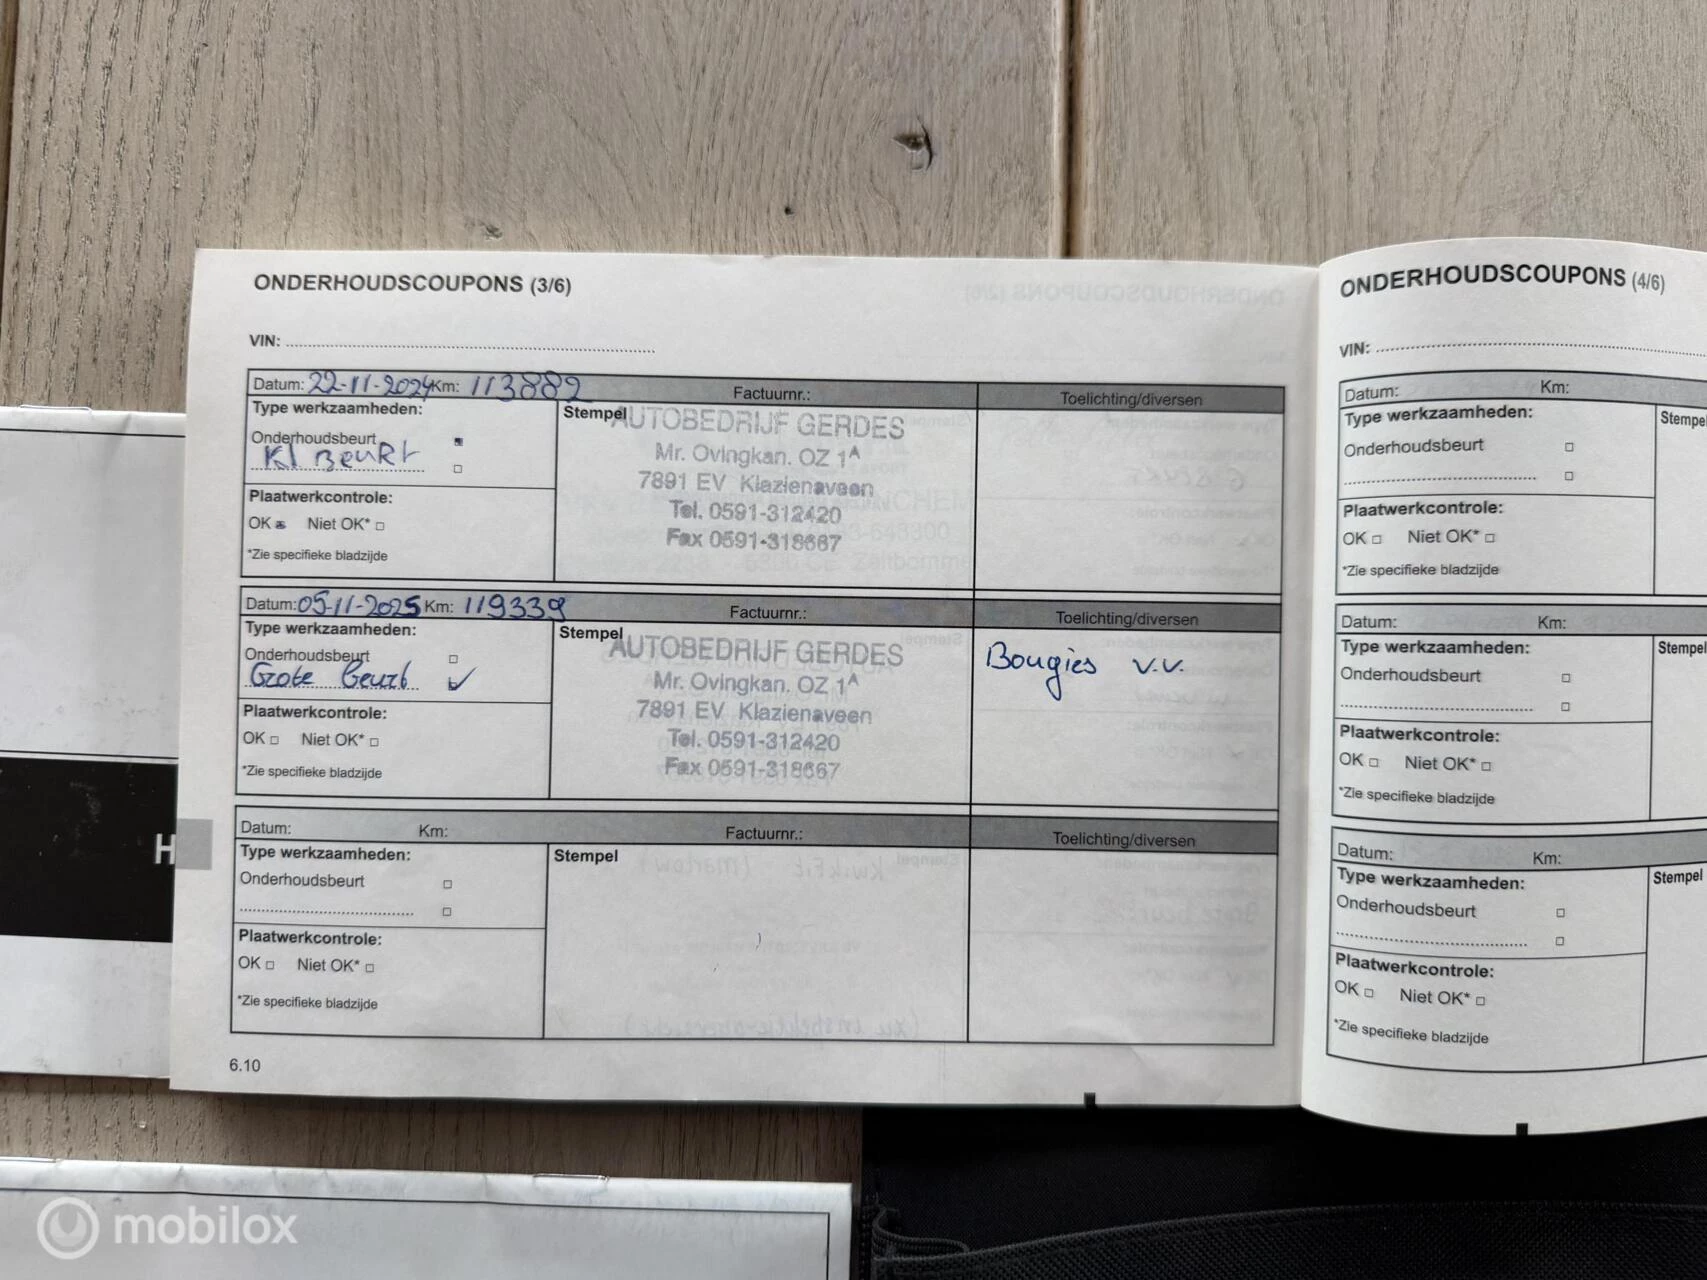 ONDERHOUDSCOUPONS (3/6)
VIN:
Datum: 22-11-2024 Km: 113882 Factuurnr.: Toelichting/diversen
Type werkzaamheden:
Onderhoudsbeurt
Kl Beurt
Plaatwerkcontrole:
OK Niet OK*
*Zie specifieke bladzijde
Stempel
AUTOBEDRIJF GERDES
Mr. Ovingkan. OZ 1A
7891 EV Klazienaveen
Tel. 0591-312420
Fax 0591-318667
Datum: 05-11-2025 Km: 119339 Factuurnr.: Toelichting/diversen
Type werkzaamheden:
Onderhoudsbeurt
Grote beurt
Plaatwerkcontrole:
OK Niet OK*
*Zie specifieke bladzijde
Stempel
AUTOBEDRIJF GERDES
Mr. Ovingkan. OZ 1A
7891 EV Klazienaveen
Tel. 0591-312420
Fax 0591-318667
Bougies v.v.
Datum: Km: Factuurnr.: Toelichting/diversen
Type werkzaamheden:
Onderhoudsbeurt
Plaatwerkcontrole:
OK Niet OK*
*Zie specifieke bladzijde
Stempel
6.10
ONDERHOUDSCOUPONS (4/6)
VIN:
Datum: Km:
Type werkzaamheden:
Onderhoudsbeurt
Plaatwerkcontrole:
OK Niet OK*
*Zie specifieke bladzijde
Stempel
Datum: Km:
Type werkzaamheden:
Onderhoudsbeurt
Plaatwerkcontrole:
OK Niet OK*
*Zie specifieke bladzijde
Stempel
Datum: Km:
Type werkzaamheden:
Onderhoudsbeurt
Plaatwerkcontrole:
OK Niet OK*
*Zie specifieke bladzijde
Stempel
H
mobilox